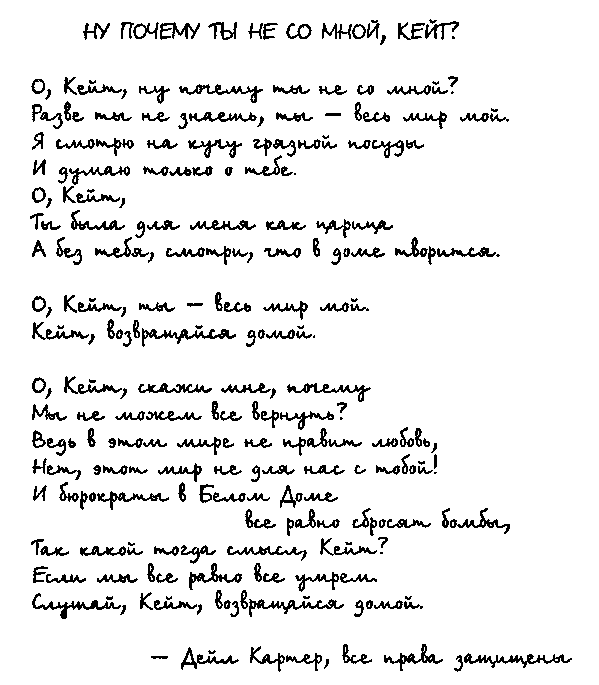 НУ ПОЧЕМУ ТЫ НЕ СО МНОЙ, КЕЙТ?
О, Кейт, ну почему ты не со мной?
Разве ты не знаешь, ты — весь мир мой.
Я смотрю на кучу грязной посуды
И думаю только о тебе.
О, Кейт,
Ты была для меня как царица
А без тебя, смотри, что в доме творится.
О, Кейт, ты — весь мир мой.
Кейт, возвращайся домой.
О, Кейт, скажи мне, почему
Мы не можем все вернуть?
Ведь в этом мире не правит любовь,
Нет, этот мир не для нас с тобой!
И бюрократы в Белом Доме
все равно сбросят бомбы,
Так какой тогда смысл, Кейт?
Если мы все равно все умрем.
Слушай, Кейт, возвращайся домой.
— Дейл Картер, все права защищены